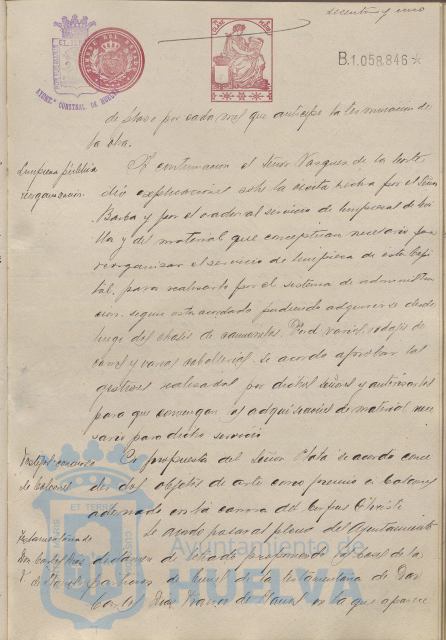 B.1.058.846*
AYUNT. CONSTNAL. DE HUELVA
de plazo por cada mil que anticipe la terminacion de
la obra.
Limpieza pública
reorganización.
A continuacion el Señor Vazquez de la Corte
dió explicaciones sobre la visita hecha por el Señor
Barba y por el orador al servicio de limpieza de Sevi
lla y del material que conceptuan necesario para
reorganizar el servicio de limpieza de esta Capi
tal, para realizarlo por el sistema de administra
cion, segun está acordado pudiendo adquirirse desde
luego dos chasis de camionetas Ford varios rodajes de
carros y varias caballerias, se acordó aprobar las
gestiones realizadas por dichos señores y autorizarlos
para que convengan la adquisicion de material nece
sario para dicho servicio.
de balcones
A propuesta del Señor Plata se acordó conce
der dos objetos de arte como premio a balcones
adornados en la carrera del Corpus Christi
Testamentaria de
Don Carlos Diaz
Se acordó pasar al pleno del Ayuntamiento
dictamen
de la testamentaria de Don
Carlos Diaz Franco de en la que aparece
Ayuntamiento de
HUELVA